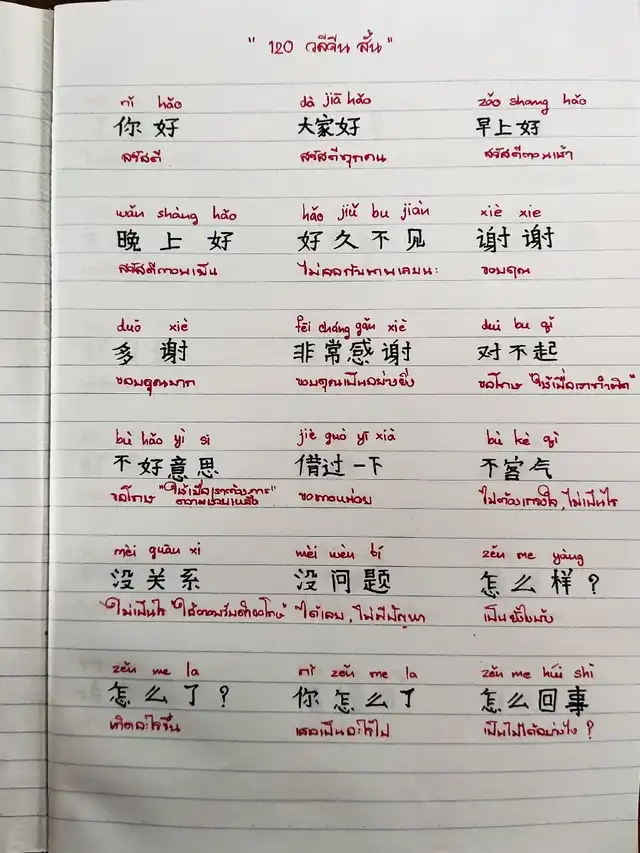 " 120 วลีจีน สั้น "
nǐ hǎo dà jiā hǎo zǎo shang hǎo
你 好 大家好 早上好
สวัสดี สวัสดีทุกคน สวัสดีตอนเช้า
wǎn shàng hǎo hǎo jiǔ bu jiàn xiè xie
晚 上 好 好 久 不 见 谢 谢
สวัสดีตอนเย็น ไม่เจอกันนานเลยนะ ขอบคุณ
duō xiè fēi cháng gǎn xiè dui bu qǐ
多 谢 非 常 感 谢 对 不 起
ขอบคุณมาก ขอบคุณเป็นอย่างยิ่ง ขอโทษ "ใช้เมื่อเราทำผิด"
bù hǎo yì si jiè guò yī xià bù kè qì
不 好 意 思 借过 一 下 不 客 气
ขอโทษ "ใช้เมื่อเราต้องการความช่วยเหลือ" ขอทางหน่อย ไม่ต้องเกรงใจ, ไม่เป็นไร
méi guān xi méi wèn tí zěn me yàng
没 关 系 没 问 题 怎 么 样 ?
ไม่เป็นไร "ใช้ตอบรับคำขอโทษ" ได้เลย, ไม่มีปัญหา เป็นยังไงบ้าง
zěn me la nǐ zěn me la zěn me húi shì
怎 么 了 ? 你 怎 么 了 怎 么 回 事
เกิดอะไรขึ้น เธอเป็นอะไรไป เป็นไปได้อย่างไง ?